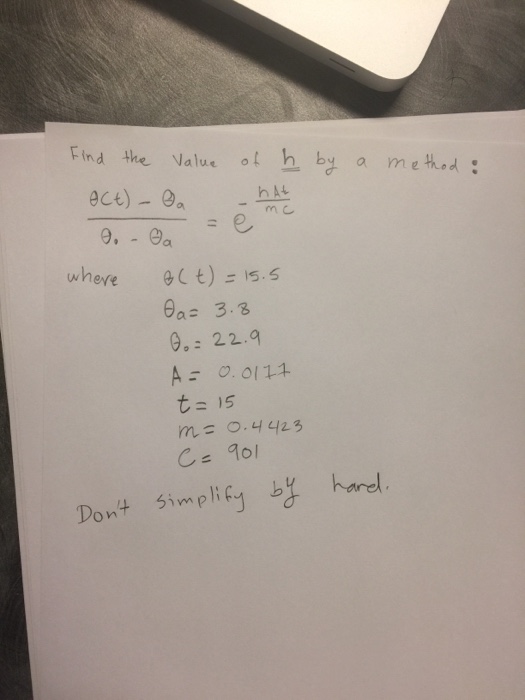 Find the Value of h by a method :
θ(t) - θa / θ₀ - θa = e^(-hAt/mc)
where θ(t) = 15.5
θa = 3.8
θ₀ = 22.9
A = 0.0177
t = 15
m = 0.4423
C = 901
Don't simplify by hand.